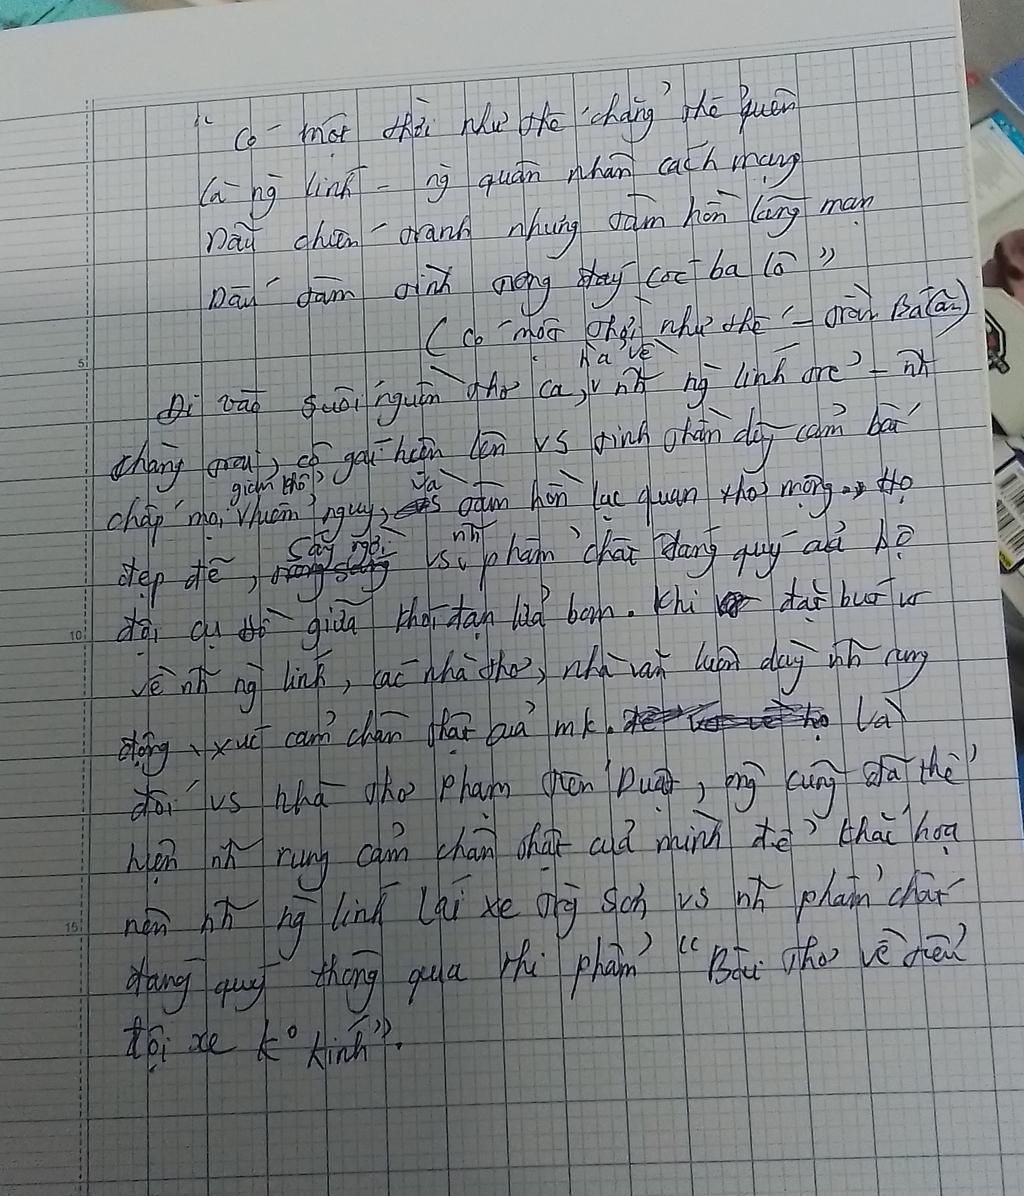 "Có một thời như thế chẳng thể quên
Là ng lính - ng quân nhân cách mạng
Dẫu chiến tranh nhưng tâm hồn lãng mạn
Dấu tâm tình trong đáy cóc ba lô"
(Có một thời như thế - Trần Bá
h/a về
Đi vào suối nguồn thơ ca, nh ng lính trẻ - nh
chàng trai, cô gái hiện lên vs tinh thần dũng cảm bất
gian khổ, và
chấp mọi hiểm nguy, tâm hồn lạc quan thơ mộng. Họ
sáng ngời nh
đẹp đẽ, vs phẩm chất đáng quý của bộ
đội cụ Hồ giữa khói đạn lửa bom. Khi đặt bút
về nh ng lính, các nhà thơ, nhà văn luôn dùng nh rung
động, xúc cảm chân thật của mk. Và
đối vs nhà thơ Phạm Tiến Duật, ông cũng đã thể
hiện nh rung cảm chân thật của mình để khắc họa
nên nh ng lính lái xe Trg Sơn vs nh phẩm chất
đáng quý thông qua thi phẩm "Bài thơ về tiểu
đội xe kº kính".